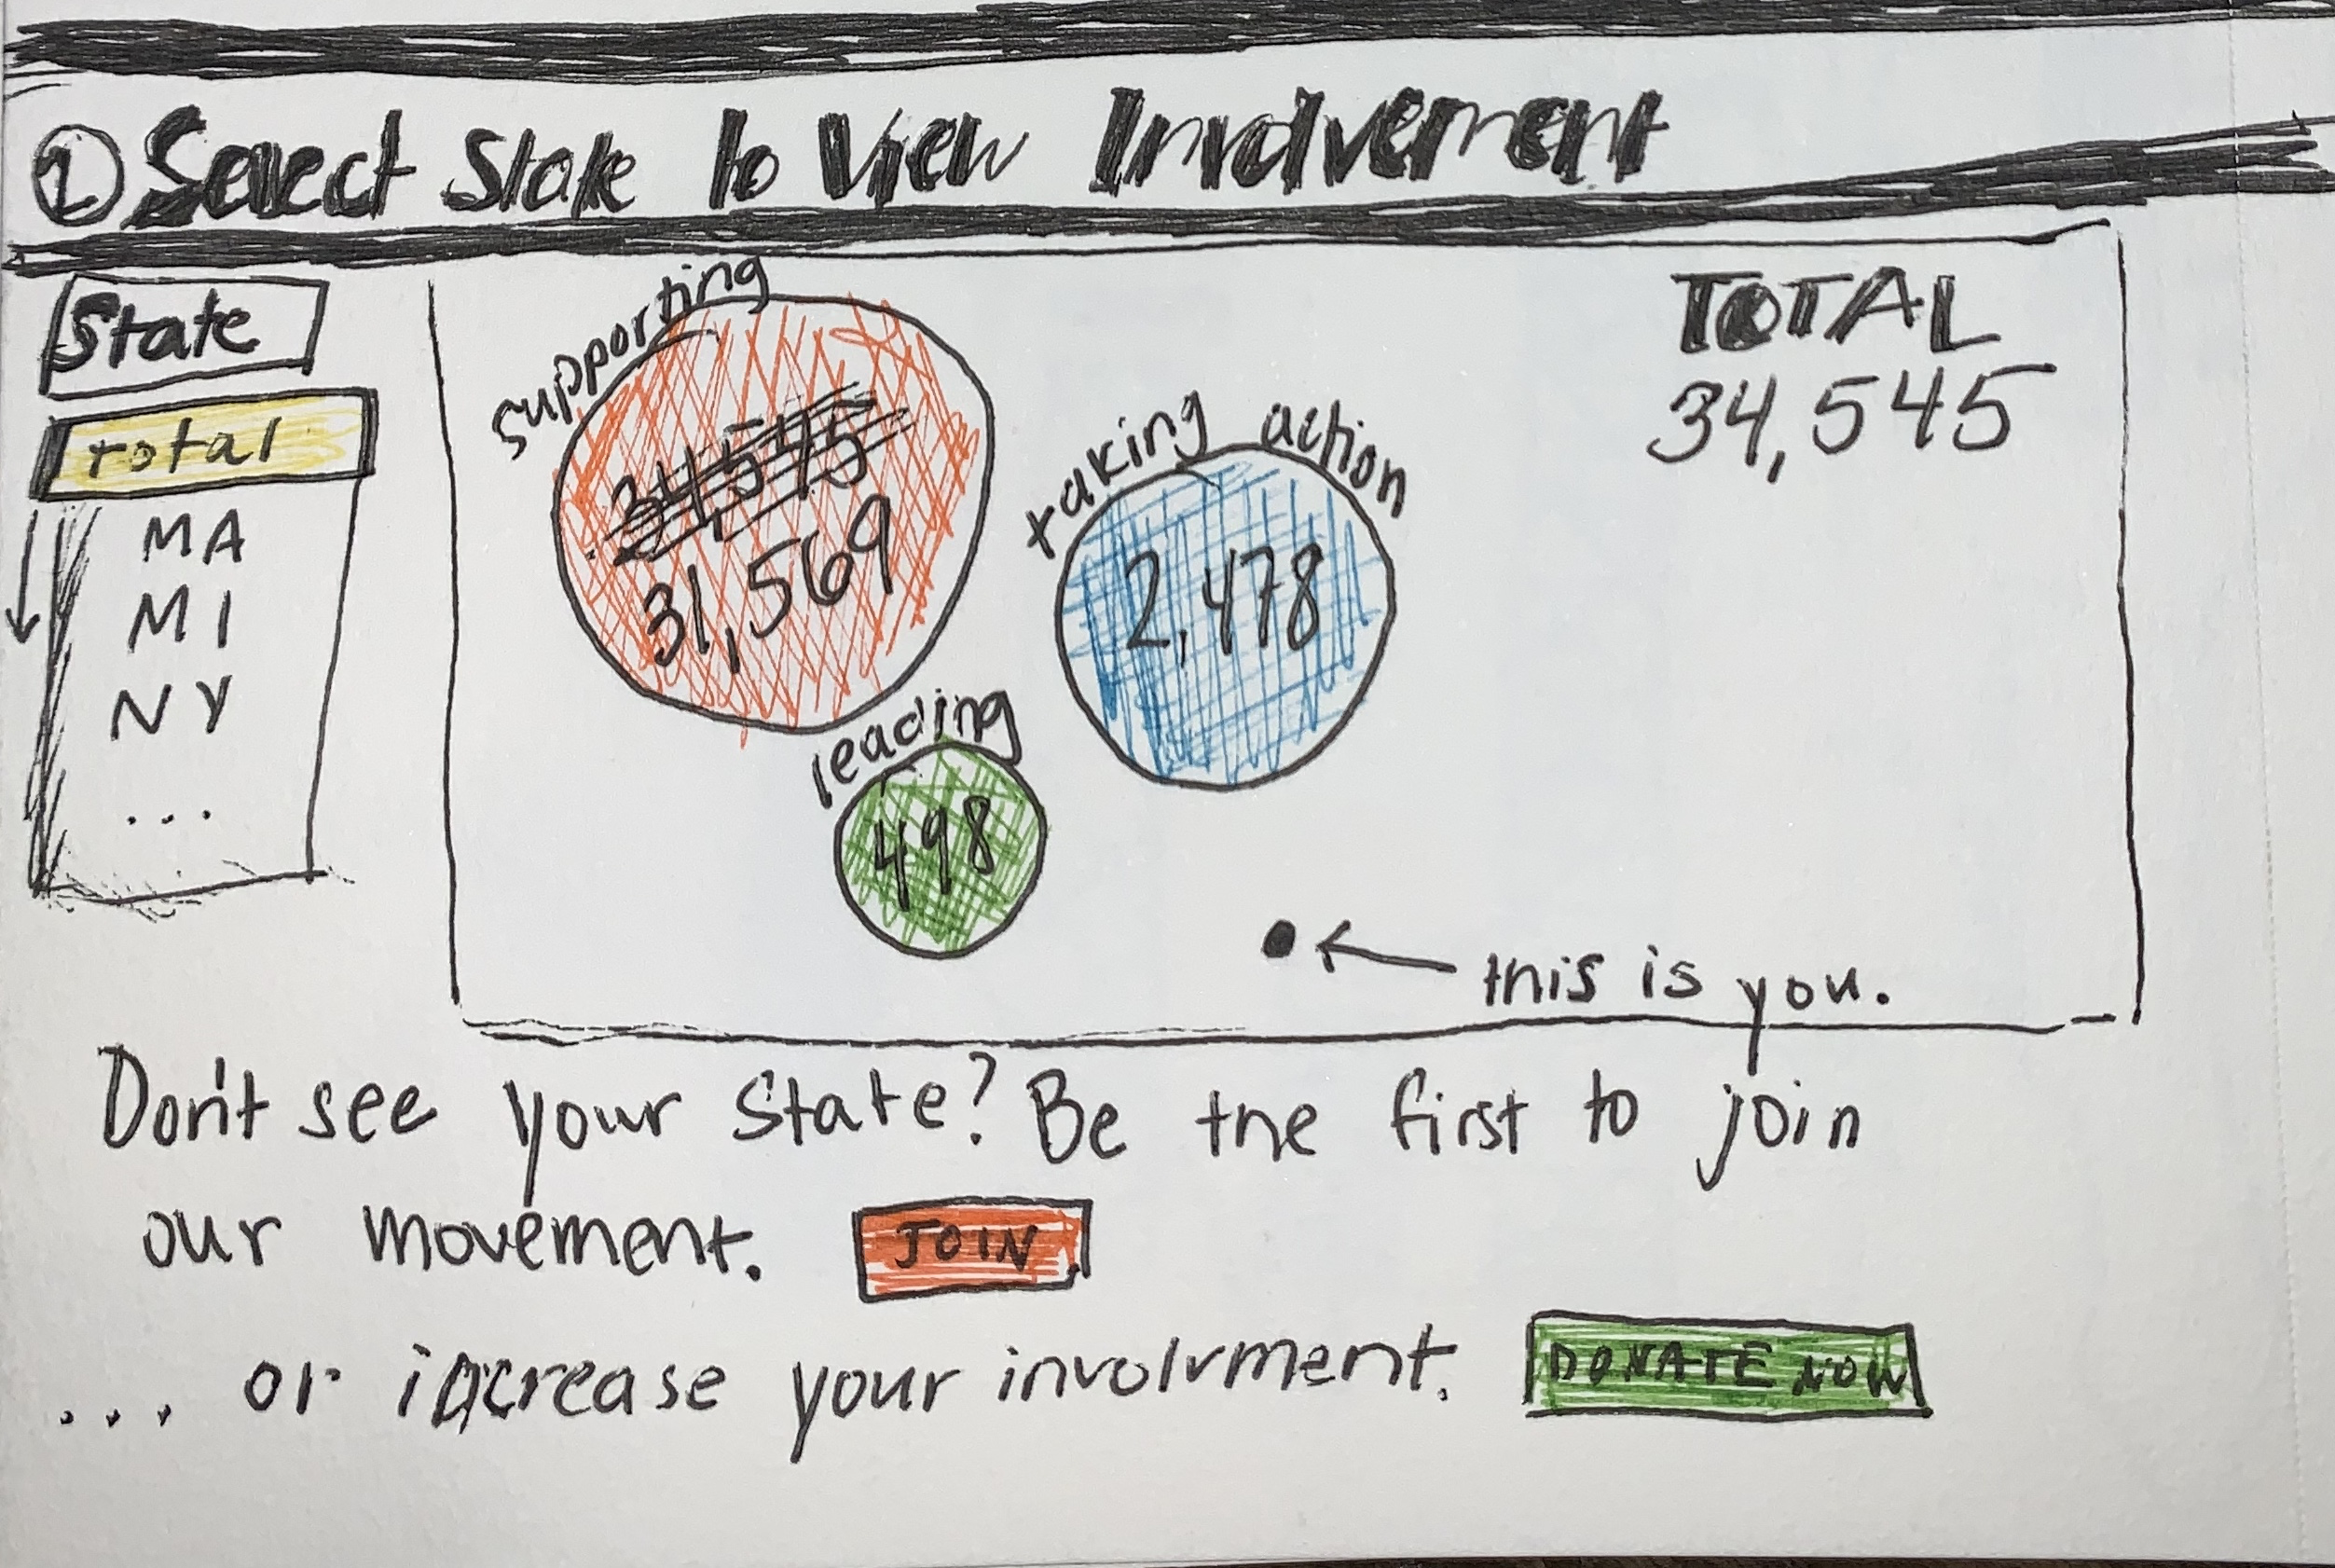 ① Select State to View Involvement
State
total
MA
MI
NY
...
supporting
34,545
31,569
taking action
2,478
leading
498
TOTAL
34,545
this is you.
Don't see your state? Be the first to join
our movement. JOIN
... or increase your involvment. DONATE NOW